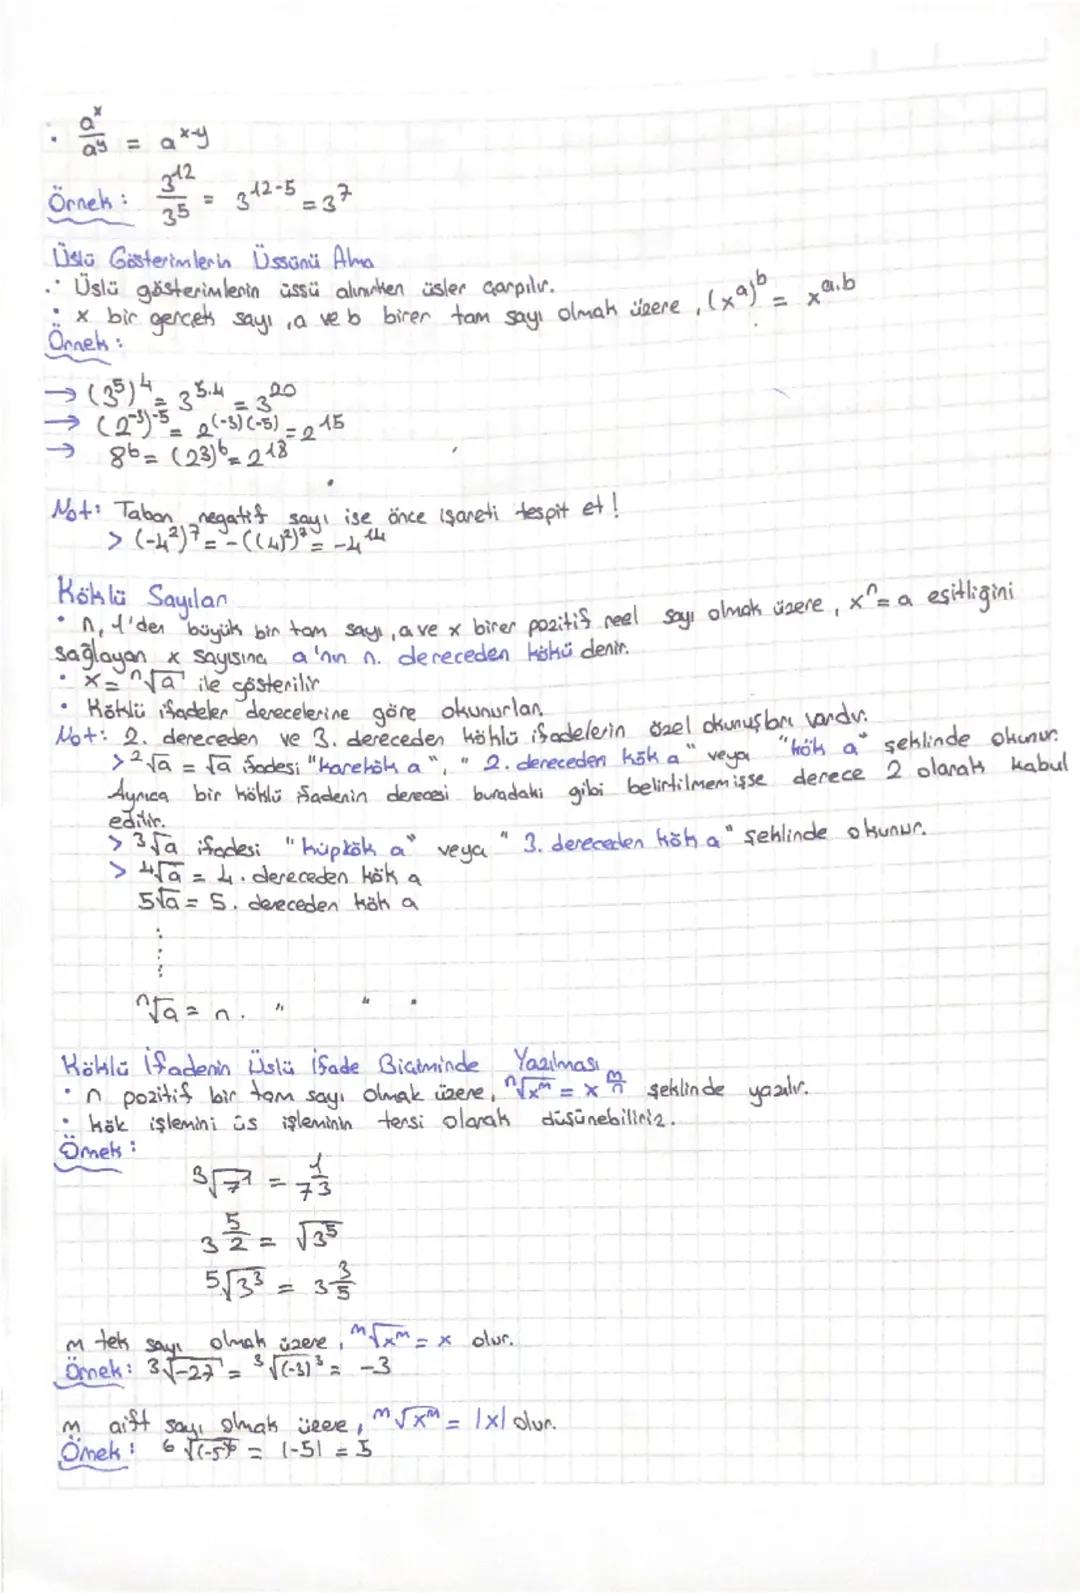 • aˣ/aʸ = a^(x-y)
Örnek: 3^12/3^5 = 3^(12-5) = 3^7
Üslü Gösterimlerin Üssünü Alma
• Üslü gösterimlerin üssü alınırken üsler çarpılır.
• x bir gerçek sayı, a ve b birer tam sayı olmak üzere, (x^a)^b = x^(a.b)
Örnek:
→ (3^5)^4 = 3^(5.4) = 3^20
→ (2^-3)^-5 = 2^((-3)(-5)) = 2^15
→ 8^6 = (2^3)^6 = 2^18
Not: Taban negatif sayı ise önce işareti tespit et!
> (-4^2)^7 = -((4)^2)^7 = -4^14
Köklü Sayılar
• n, 1'den büyük bir tam sayı, a ve x birer pozitif reel sayı olmak üzere, x^n = a eşitliğini
sağlayan x sayısına a'nın n. dereceden kökü denir.
• x = ⁿ√a ile gösterilir
• Köklü ifadeler derecelerine göre okunurlar.
Not: 2. dereceden ve 3. dereceden köklü ifadelerin özel okunuşları vardır.
> ²√a = √a ifadesi "karekök a", "2. dereceden kök a" veya "kök a" şeklinde okunur.
Ayrıca bir köklü ifadenin derecesi buradaki gibi belirtilmemişse derece 2 olarak kabul
edilir.
> ³√a ifadesi "küpkök a" veya "3. dereceden kök a" şeklinde okunur.
> ⁴√a = 4. dereceden kök a
5√a = 5. dereceden kök a
ⁿ√a = n. " " "
Köklü İfadenin Üslü İfade Biçiminde Yazılması
• n pozitif bir tam sayı olmak üzere, ⁿ√x^m = x^(m/n) şeklinde yazılır.
• kök işlemini üs işleminin tersi olarak düşünebiliriz.
Örnek:
³√7^1 = 7^(1/3)
3^(5/2) = √3^5
⁵√3^3 = 3^(3/5)
m tek sayı olmak üzere, ᵐ√x^m = x olur.
Örnek: ³√-27 = ³√(-3)^3 = -3
m çift sayı olmak üzere, ᵐ√x^m = |x| olur.
Örnek: ⁶√(-5)^6 = |-5| = 5